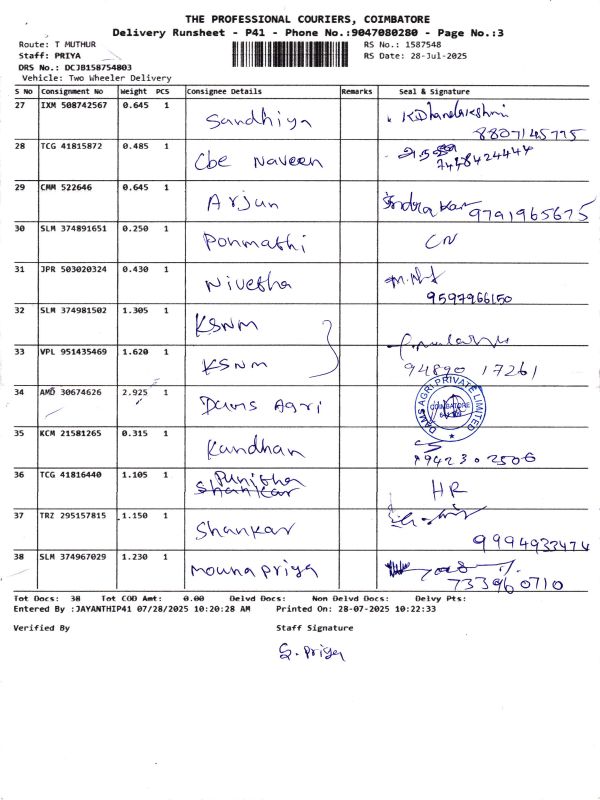 THE PROFESSIONAL COURIERS, COIMBATORE
Delivery Runsheet - P41 - Phone No.:9047080280 - Page No.:3
Route: T MUTHUR RS No.: 1587548
Staff: PRIYA RS Date: 28-Jul-2025
DRS No.: DCJB158754803
Vehicle: Two Wheeler Delivery
S No Consignment No Weight PCS Consignee Details Remarks Seal & Signature
27 IXM 508742567 0.645 1 Sandhiya K Dhanalakshmi
8807145775
28 TCG 41815872 0.485 1 Cbe Naveen
7448424444
29 CMM 522646 0.645 1 Arjun Indra Kar 9791965675
30 SLM 374891651 0.250 1 Ponmathi CN
31 JPR 503020324 0.430 1 Nivetha
9597966150
32 SLM 374981502 1.305 1 KSNM
33 VPL 951435469 1.620 1 KSNM 94890 17261
34 AMD 30674626 2.925 1 Dams Agri DAMS AGRI PRIVATE LIMITED COIMBATORE
35 KCM 21581265 0.315 1 Kandhan
9942302506
36 TCG 41816440 1.105 1 Punitha HR
Shankar
37 TRZ 295157815 1.150 1 Shankar
9994933474
38 SLM 374967029 1.230 1 Mounapriya
733960710
Tot Docs: 38 Tot COD Amt: 0.00 Delvd Docs: Non Delvd Docs: Delvy Pts:
Entered By :JAYANTHIP41 07/28/2025 10:20:28 AM Printed On: 28-07-2025 10:22:33
Verified By Staff Signature
S. Priya